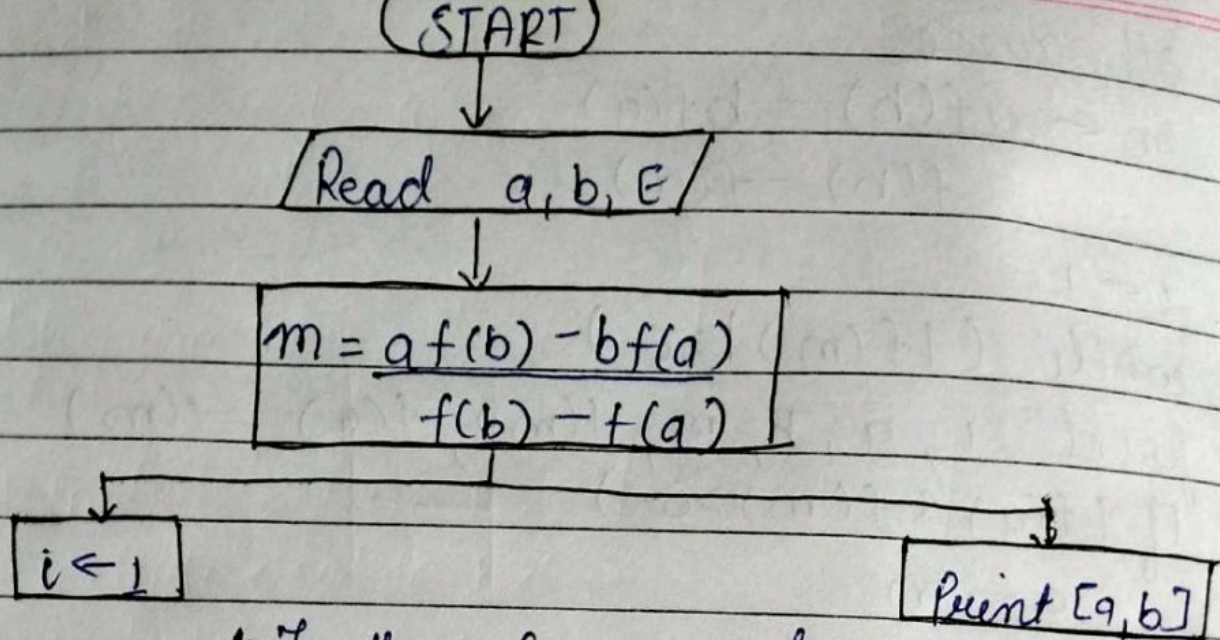 START
Read a, b, E
m = af(b) - bf(a)
f(b) - f(a)
i ← 1
Print [a, b]